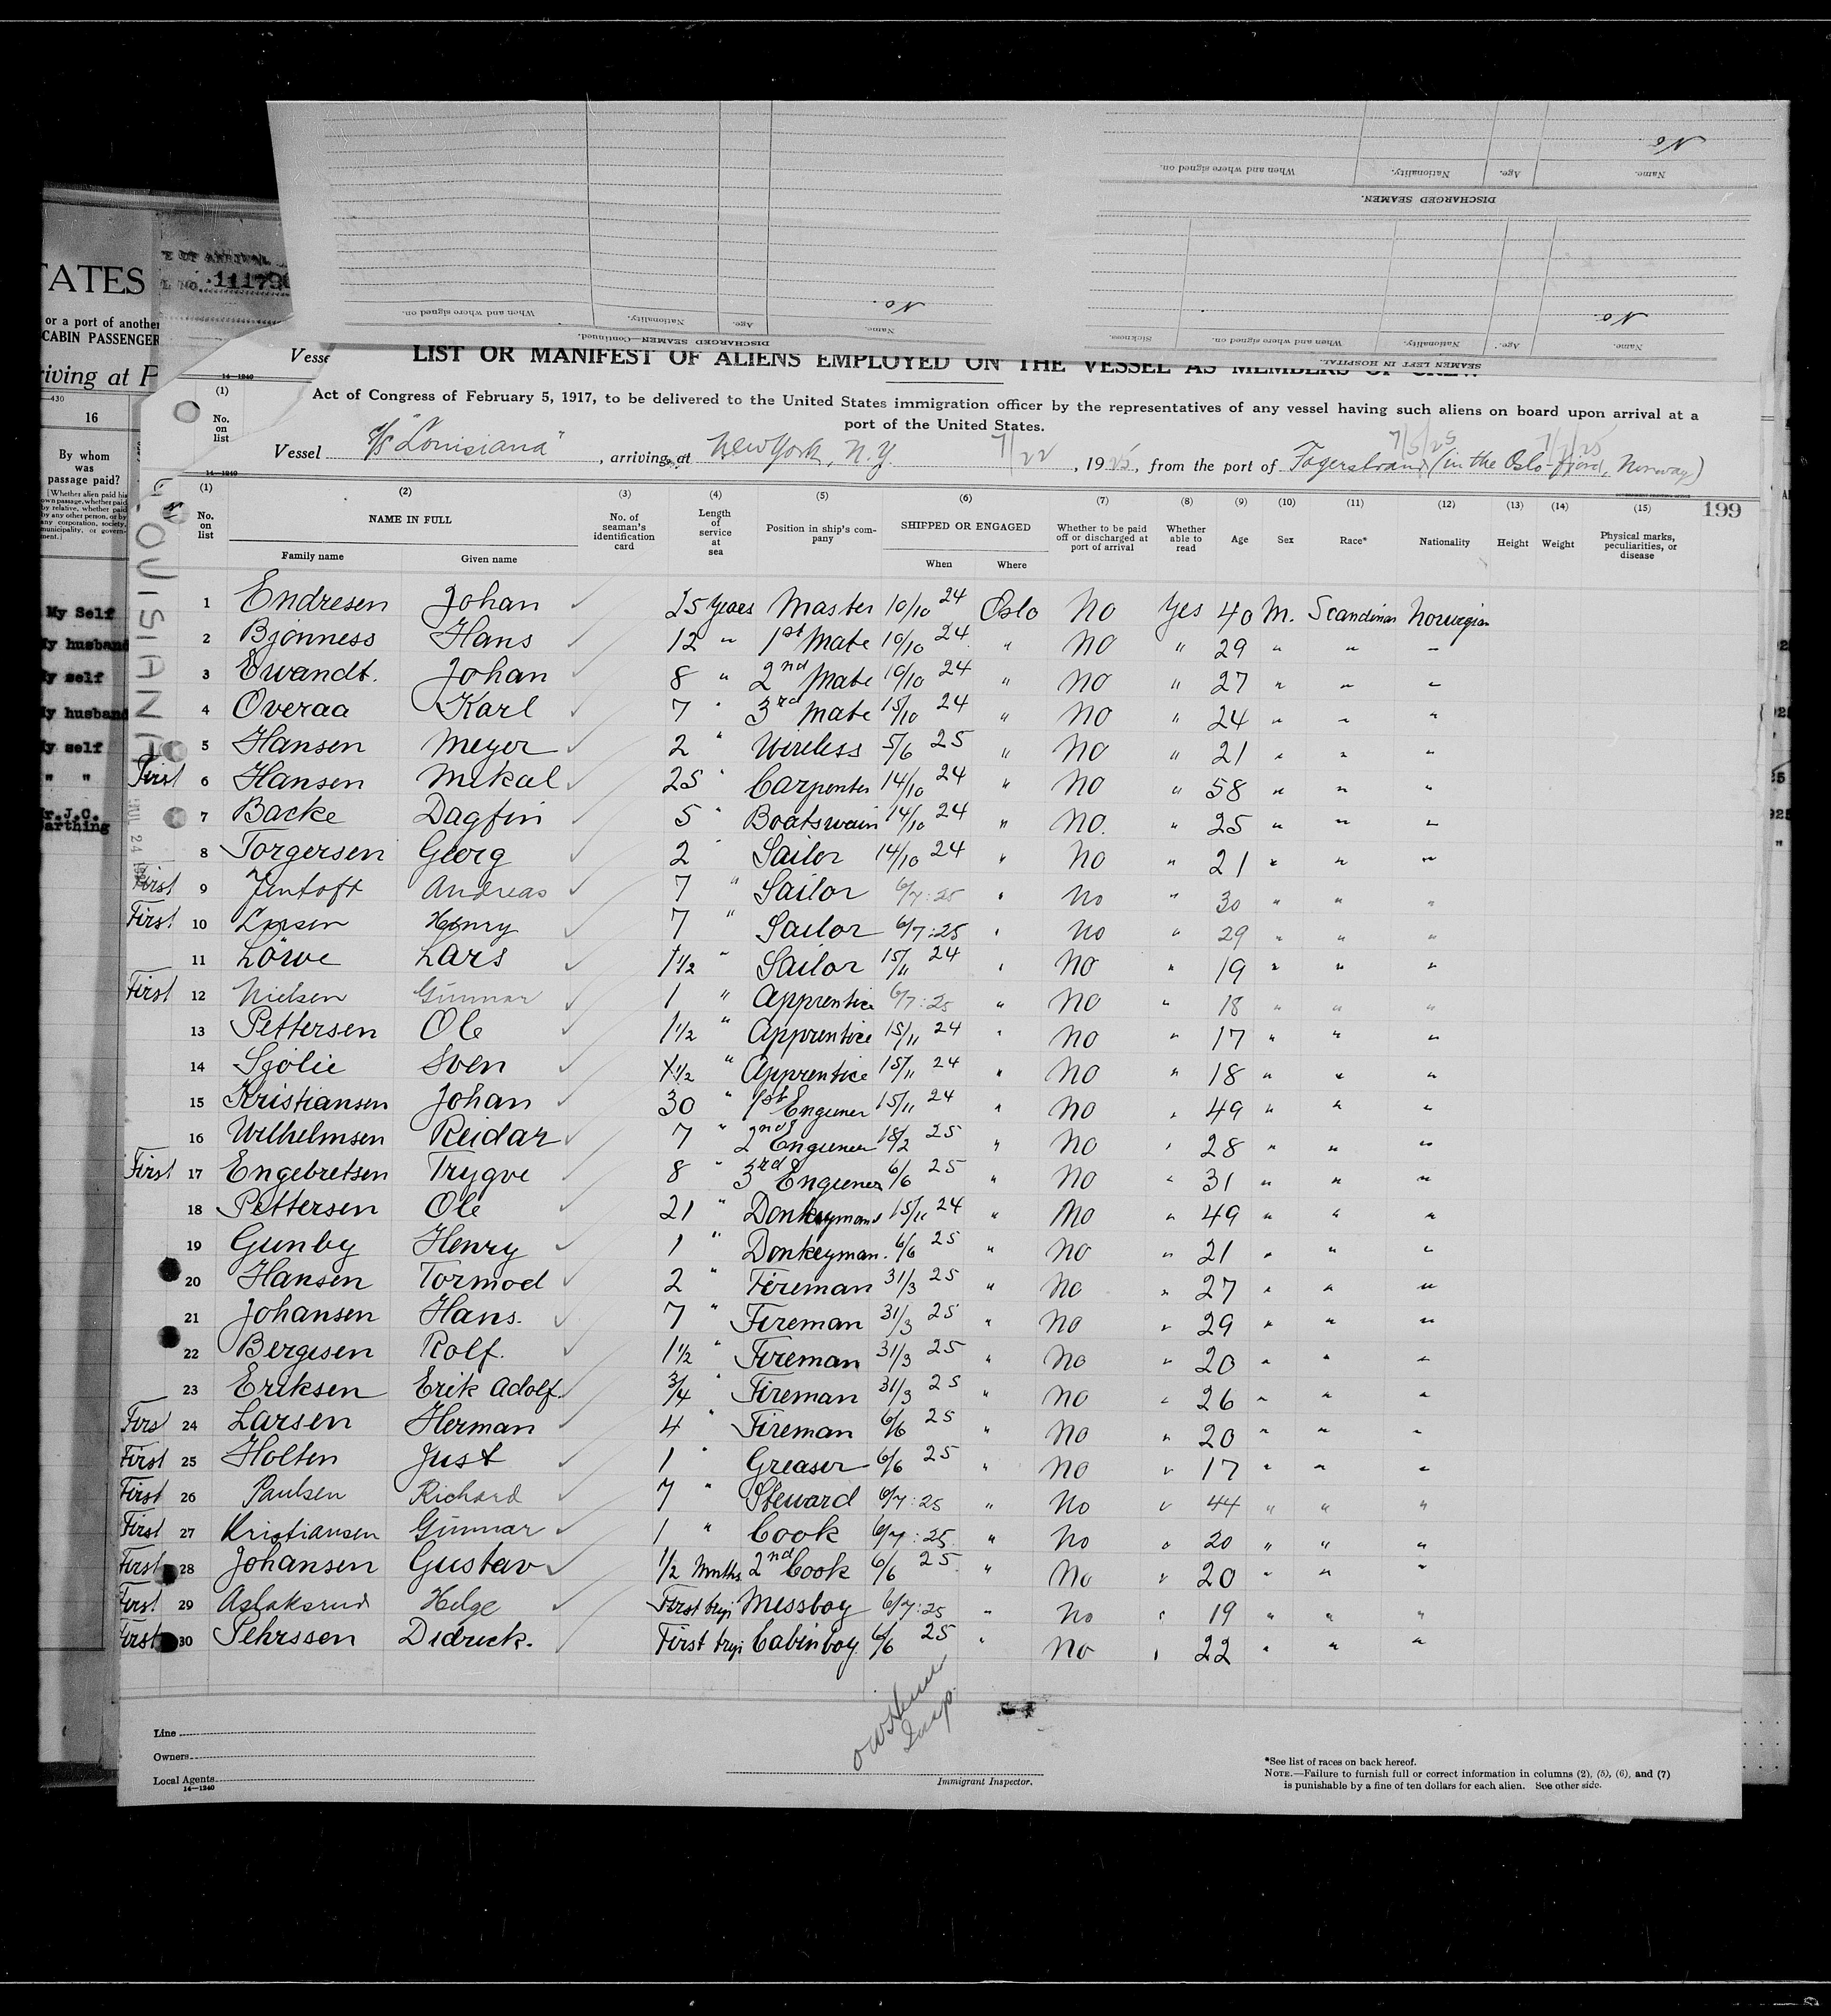 No
Name.
Age.
Nationality.
When and where signed on.
DISCHARGED SEAMEN.
No.
Name.
Age.
Nationality.
When and where signed on.
Sickness.
SEAMEN LEFT IN HOSPITAL.
No.
Name.
Age.
Nationality.
When and where signed on.
DISCHARGED SEAMEN—Continued.
E OF ARRIVAL
L NO. 11173
TATES
or a port of another
CABIN PASSENGER
riving at P
430
16
By whom was passage paid?
[Whether alien paid his own passage, whether paid by relative, whether paid by any other person, or by any corporation, society, municipality, or government.]
My Self
My husband
My self
My husband
My self
" "
Mr.J.C.
arthing
Vesse
14—1240
(1)
No. on list
LOUISIANA
JUL 24
LIST OR MANIFEST OF ALIENS EMPLOYED ON THE VESSEL AS MEMBERS OF CREW
Act of Congress of February 5, 1917, to be delivered to the United States immigration officer by the representatives of any vessel having such aliens on board upon arrival at a
port of the United States.
7/5/25 7/7/25
Vessel S/S "Louisiana", arriving at New York, N.Y. 7/22, 1925, from the port of Fagerstrand (in the Oslo-fjord, Norway)
14—1240
199
(1) (2) (3) (4) (5) (6) (7) (8) (9) (10) (11) (12) (13) (14) (15)
No. on list NAME IN FULL No. of seaman's identification card Length of service at sea Position in ship's company SHIPPED OR ENGAGED Whether to be paid off or discharged at port of arrival Whether able to read Age Sex Race* Nationality Height Weight Physical marks, peculiarities, or disease
Family name Given name When Where
1 Endresen Johan 25 years Master 10/10 24 Oslo No Yes 40 M. Scandinav Norwegian
2 Bjönness Hans 12 " 1st Mate 10/10 24 " No " 29 " " "
3 Ewandt. Johan 8 " 2nd Mate 10/10 24 " No " 27 " " "
4 Overaa Karl 7 " 3rd Mate 15/10 24 " No " 24 " " "
5 Hansen Meyer 2 " Wireless 5/6 25 " No " 21 " " "
First 6 Hansen Mikal 25 " Carpenter 14/10 24 " No " 58 " " "
7 Backe Dagfin 5 " Boatswain 14/10 24 " No. " 25 " " "
8 Torgersen Georg 2 " Sailor 14/10 24 " No " 21 " " "
First 9 Jentoft Andreas 7 " Sailor 6/7:25 " No " 30 " " "
First 10 Larsen Henry 7 " Sailor 6/7:25 " No " 29 " " "
11 Löwe Lars 1 1/2 " Sailor 15/11 24 " No " 19 " " "
First 12 Nielsen Gunnar 1 " Apprentice 6/7:25 " No " 18 " " "
13 Pettersen Ole 1 1/2 " Apprentice 15/11 24 " No " 17 " " "
14 Sjölie Sven 1 1/2 " Apprentice 15/11 24 " No " 18 " " "
15 Kristiansen Johan 30 " 1st Engineer 15/11 24 " No " 49 " " "
16 Wilhelmsen Reidar 7 " 2nd Engineer 18/2 25 " No " 28 " " "
First 17 Engebretsen Trygve 8 " 3rd Engineer 6/6 25 " No " 31 " " "
18 Pettersen Ole 21 " Donkeyman 15/11 24 " No " 49 " " "
19 Gunby Henry 1 " Donkeyman. 6/6 25 " No " 21 " " "
20 Hansen Tormod 2 " Fireman 31/3 25 " No " 27 " " "
21 Johansen Hans. 7 " Fireman 31/3 25 " No " 29 " " "
22 Bergesen Rolf. 1 1/2 " Fireman 31/3 25 " No " 20 " " "
23 Eriksen Erik Adolf. 3/4 " Fireman 31/3 25 " No " 26 " " "
Firs 24 Larsen Herman 4 " Fireman 6/6 25 " No " 20 " " "
First 25 Holten Just 1 " Greaser 6/6 25 " No " 17 " " "
First 26 Paulsen Richard 7 " Steward 6/7:25 " No " 44 " " "
First 27 Kristiansen Gunnar 1 " Cook 6/7:25 " No " 20 " " "
First 28 Johansen Gustav 1/2 Mnths 2nd Cook 6/6 25. " No " 20 " " "
First 29 Aslaksrud Helge First trip Messboy 6/7:25 " No " 19 " " "
First 30 Tehrssen Didrick. First trip Cabinboy. 6/6 25 " No " 22 " " "
Insp.
Line
Owners
Local Agents
14—1240
Immigrant Inspector.
*See list of races on back hereof.
NOTE.—Failure to furnish full or correct information in columns (2), (5), (6), and (7)
is punishable by a fine of ten dollars for each alien. See other side.